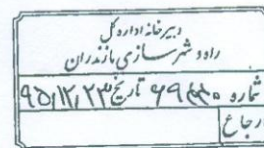 دبیرخانه اداره کل
راه و شهرسازی مازندران
شماره ۶۹۴۴۰ تاریخ ۹۵/۱۲/۲۳
ارجاع